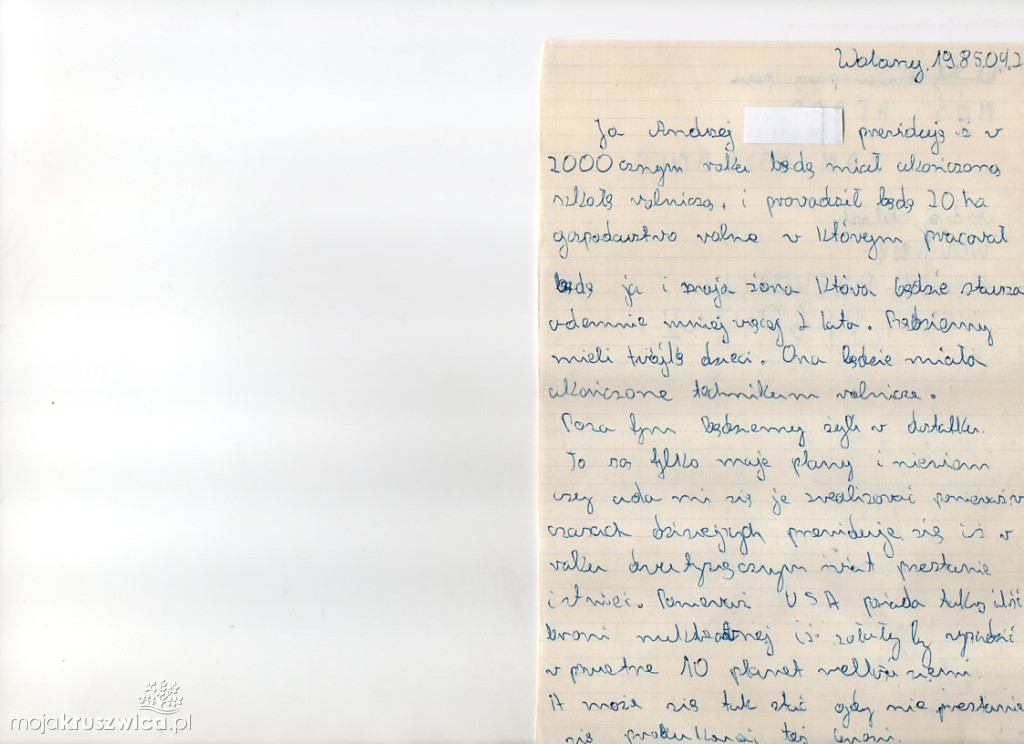 Wolany. 1985.04.2
Ja Andrzej przewiduję iż w
2000cznym roku będę miał ukończoną
szkołę rolniczą, i prowadził będę 20 ha
gospodarstwo rolne w którym pracował
będę ja i moja żona która będzie starsza
odemnie mniej więcej 2 lata. Będziemy
mieli trójkę dzieci. Ona będzie miała
ukończone technikum rolnicze.
Poza tym będziemy żyli w dostatku.
To są tylko moje plany i niewiem
czy uda mi się je zrealizować ponieważ w
czasach dzisiejszych przewiduje się iż w
roku dwutysięcznym świat przestanie
istnieć. Ponieważ USA posiada taką ilość
broni nuklearnej iż zdołały by
w powietrze 10 planet wielkości ziemi.
A może się tak stać gdy nie przestanie
się produkować tej broni.
mojakruszwica.pl